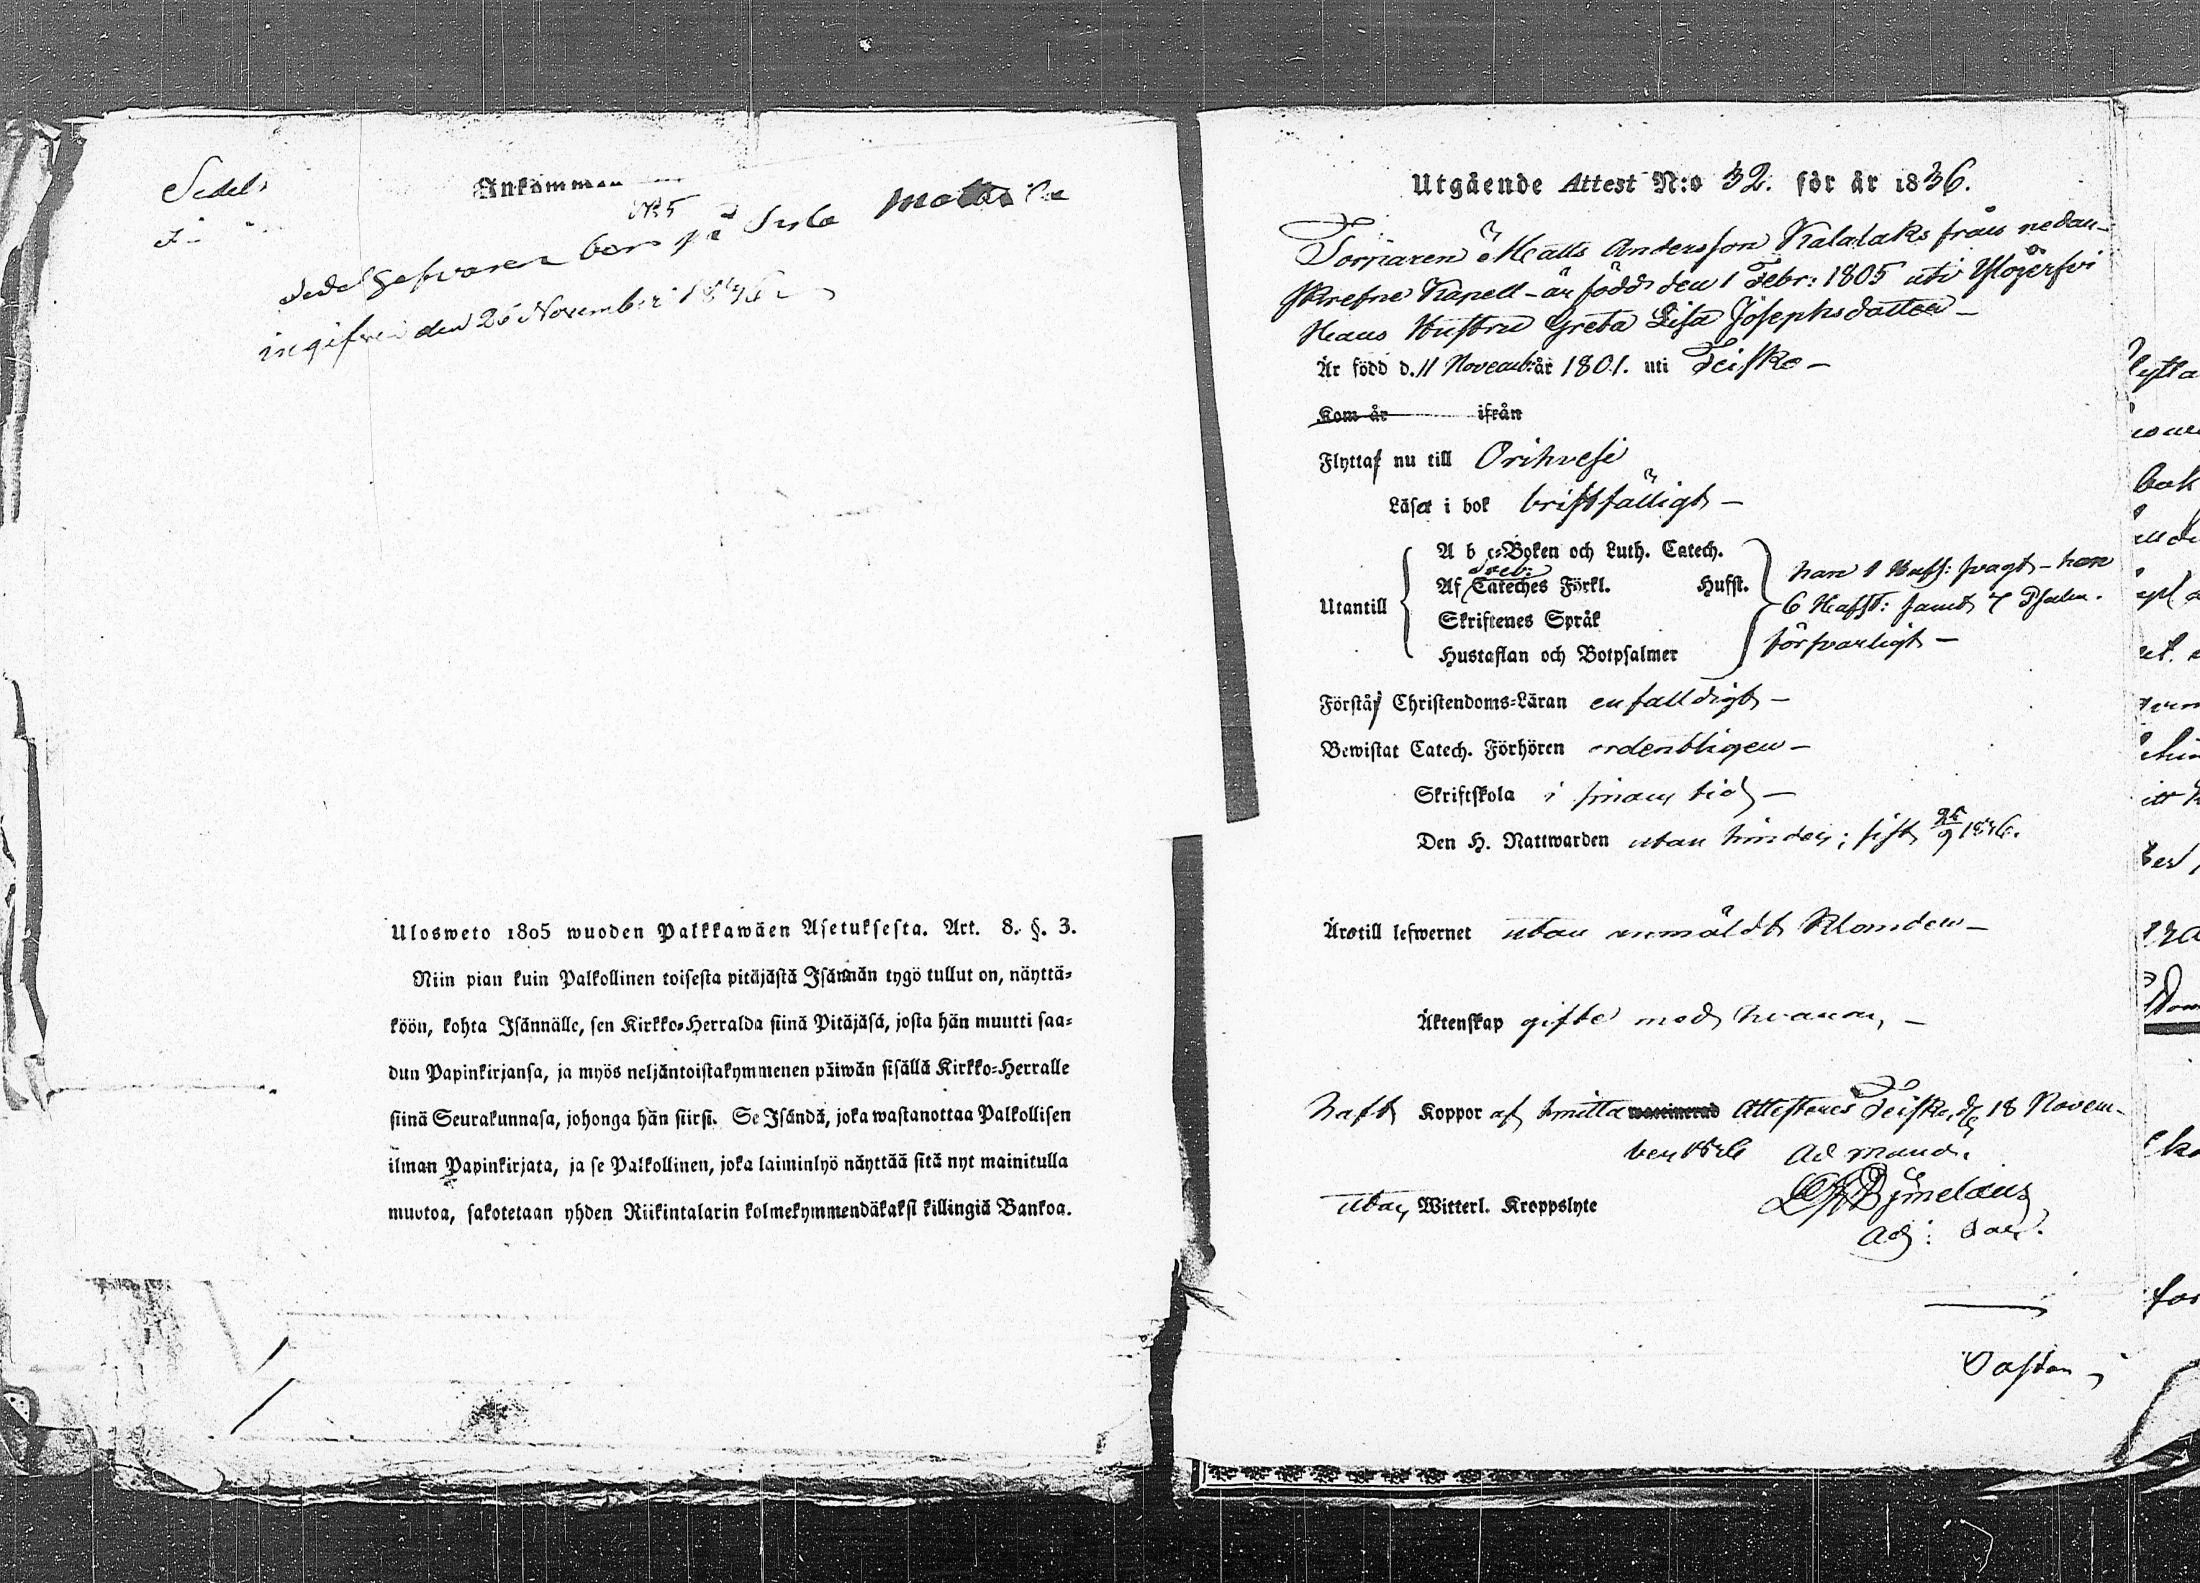 Sedel
Ankommen
N:5
ingifven den 26 November 1836
Ulosweto 1805 wuoden Palkkawäen Asetuksesta. Art. 8. §. 3.
Niin pian kuin Palkollinen toisesta pitäjästä Isännän tygö tullut on, näyttä-
köön, kohta Isännälle, sen Kirkko-Herralda siinä Pitäjäsä, josta hän muutti saa-
dun Papinkirjansa, ja myös neljäntoistakymmenen päiwän sisällä Kirkko-Herralle
siinä Seurakunnasa, johonga hän siirsi. Se Isändä, joka wastanottaa Palkollisen
ilman Papinkirjata, ja se Palkollinen, joka laiminlyö näyttää sitä nyt mainitulla
muotoa, sakotetaan yhden Riikintalarin kolmekymmendäkaksi killingiä Bankoa.
Utgående Attest N:o 32. för år 1836.
Torparen Matts Andersson Kalalaks från nedan-
skrefne Kapell - är född den 1 Febr: 1805 uti Ylöjerfvi
Hans Hustru Greta Lisa Josephsdotter -
Är född d. 11 Novemb: år 1801. uti Teisko -
Kom år ifrån
Flyttas nu till Orihvesi
Läser i bok bristfälligt -
A b c-Boken och Luth. Catech.
Af Cateches Förkl. Hufst.
Utantill
Skriftenes Språk
Hustaflan och Botpsalmer
han 1 Hufst: svagt - hon
6 Hufst: samt 7 Psalm.
försvarligt -
Förstår Christendoms-Läran enfalldigt -
Bewistat Catech. Förhören ordentligen -
Skriftskola i sinom tid -
Den H. Nattwarden utan hinder; sist 25/9 1836.
Ärotill lefwernet utan anmäldt klander -
Äktenskap gifte med hvaran, -
haft Koppor af smitta waccinerad Attesteras Teisko, d. 18 Novem-
ber 1836 Ad mand.
utan Witterl. Kroppslyte
Adj: Sac.